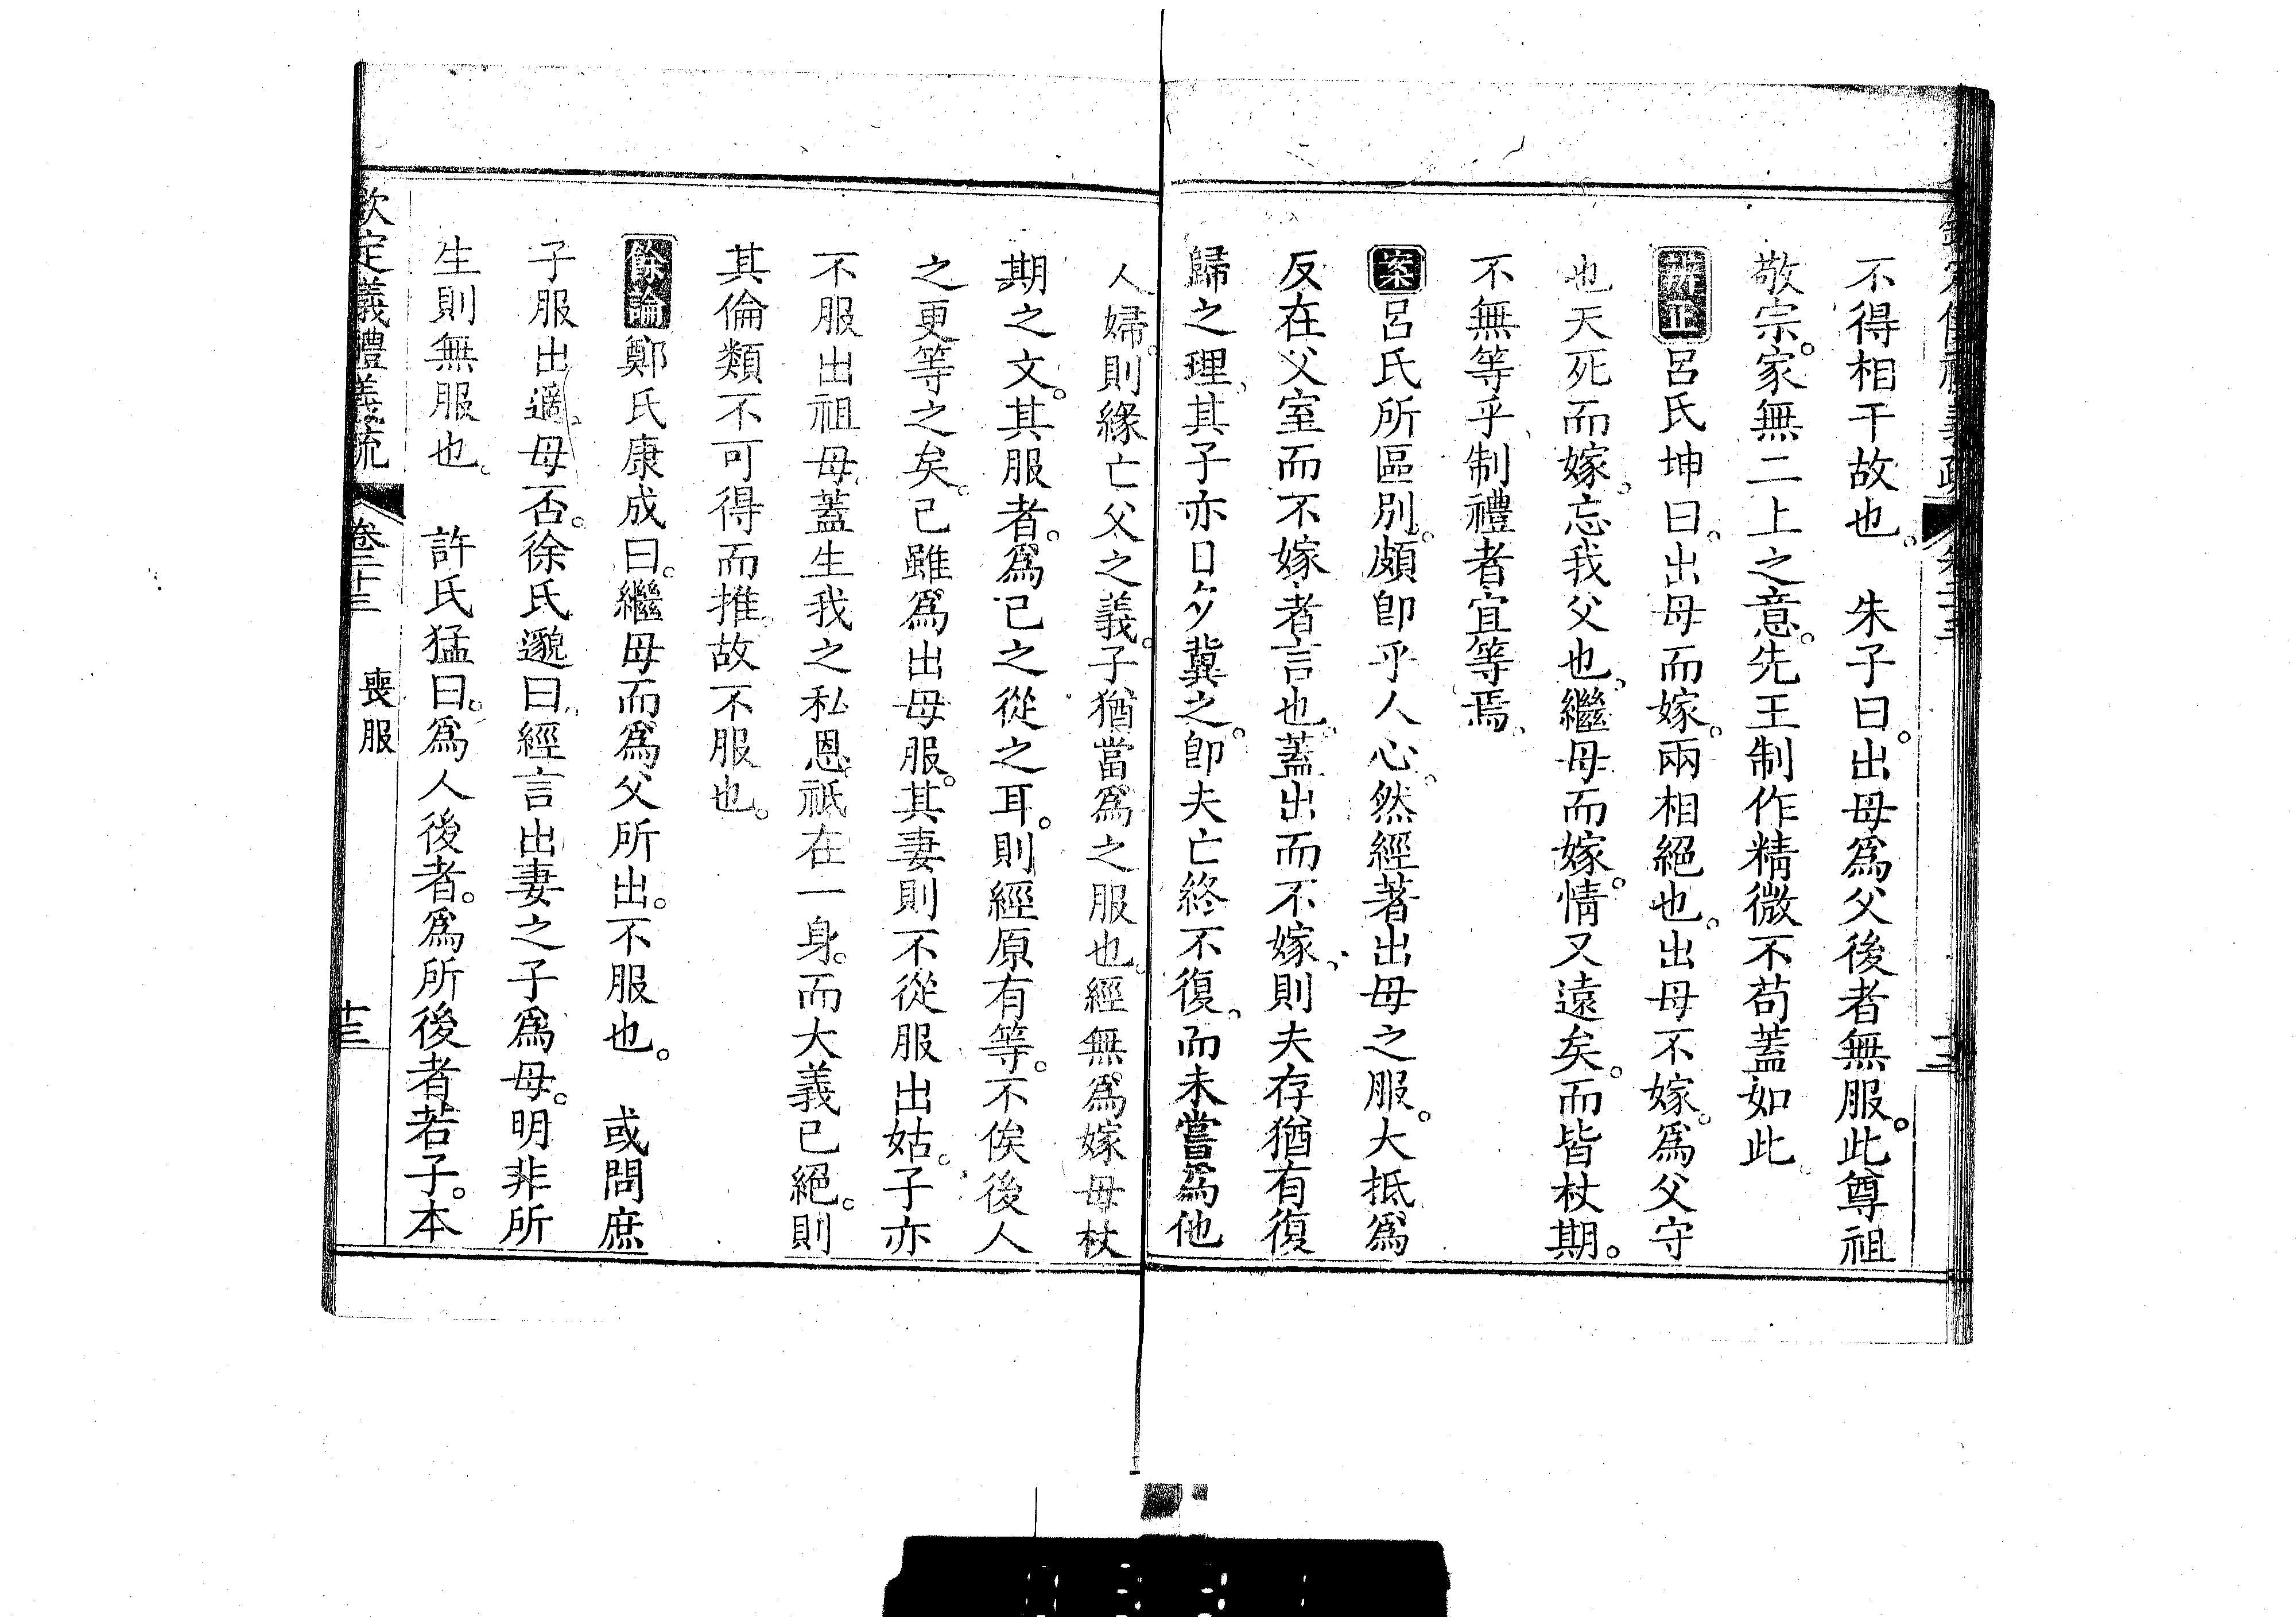 不得相干故也。　朱子曰。出母爲父後者無服。此尊祖
敬宗。家無二上之意。先王制作精微不苟蓋如此
呂氏坤曰。出母而嫁。兩相絕也。出母不嫁。爲父守
也天死而嫁。忘我父也。繼母而嫁。情又遠矣。而皆杖期。
不無等乎、制禮者宜等焉、
案呂氏所區別。頗卽乎人心。然經著出母之服。大抵爲
反在父室而不嫁者言也。蓋出而不嫁、則夫存猶有復
歸之理、其子亦日夕冀之。卽夫亡終不復、而未嘗爲他
人婦。則緣亡父之義。子猶當爲之服也。經無爲嫁母杖
期之文。其服者。爲己之從之耳。則經原有等。不俟後人
之更等之矣。己雖爲出母服。其妻則不從服出姑。子亦
不服出祖母。蓋生我之私恩。祇在一身。而大義已絕。則
其倫類不可得而推。故不服也。
餘論鄭氏康成曰。繼母而爲父所出。不服也。　或問庶
子服出適母否。徐氏邈曰。經言出妻之子爲母。明非所
生則無服也。　許氏猛曰。爲人後者。爲所後者若子。本
欽定義禮義疏　卷二十三　喪服　十三